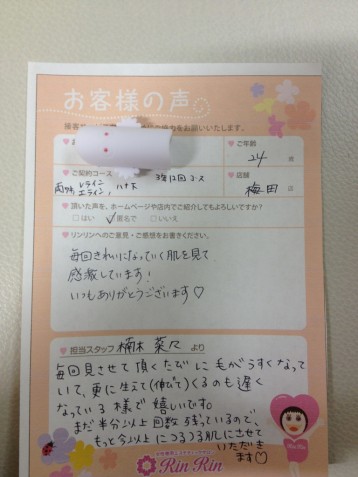 お客様の声
ご年齢
24 歳
ご契約コース
両ワキ, Vライン
Iライン, ハナ下
3年12回コース
店舗
梅田 店
頂いた声を、ホームページや店内でご紹介してもよろしいですか?
はい ✓匿名で いいえ
リンリンへのご意見・ご感想をお書きください。
毎回きれいになっていく肌を見て
感激しています!
いつもありがとうございます♡
担当スタッフ 楠木 菜々 より
毎回見させて頂くたびに毛がうすくなって
いて、更に生えて(伸びて)くるのも遅く
なっている様で嬉しいです。
まだ半分以上回数も残っているので、
もっと今以上につるつる肌にさせて
いただき
ます♡
Rin Rin